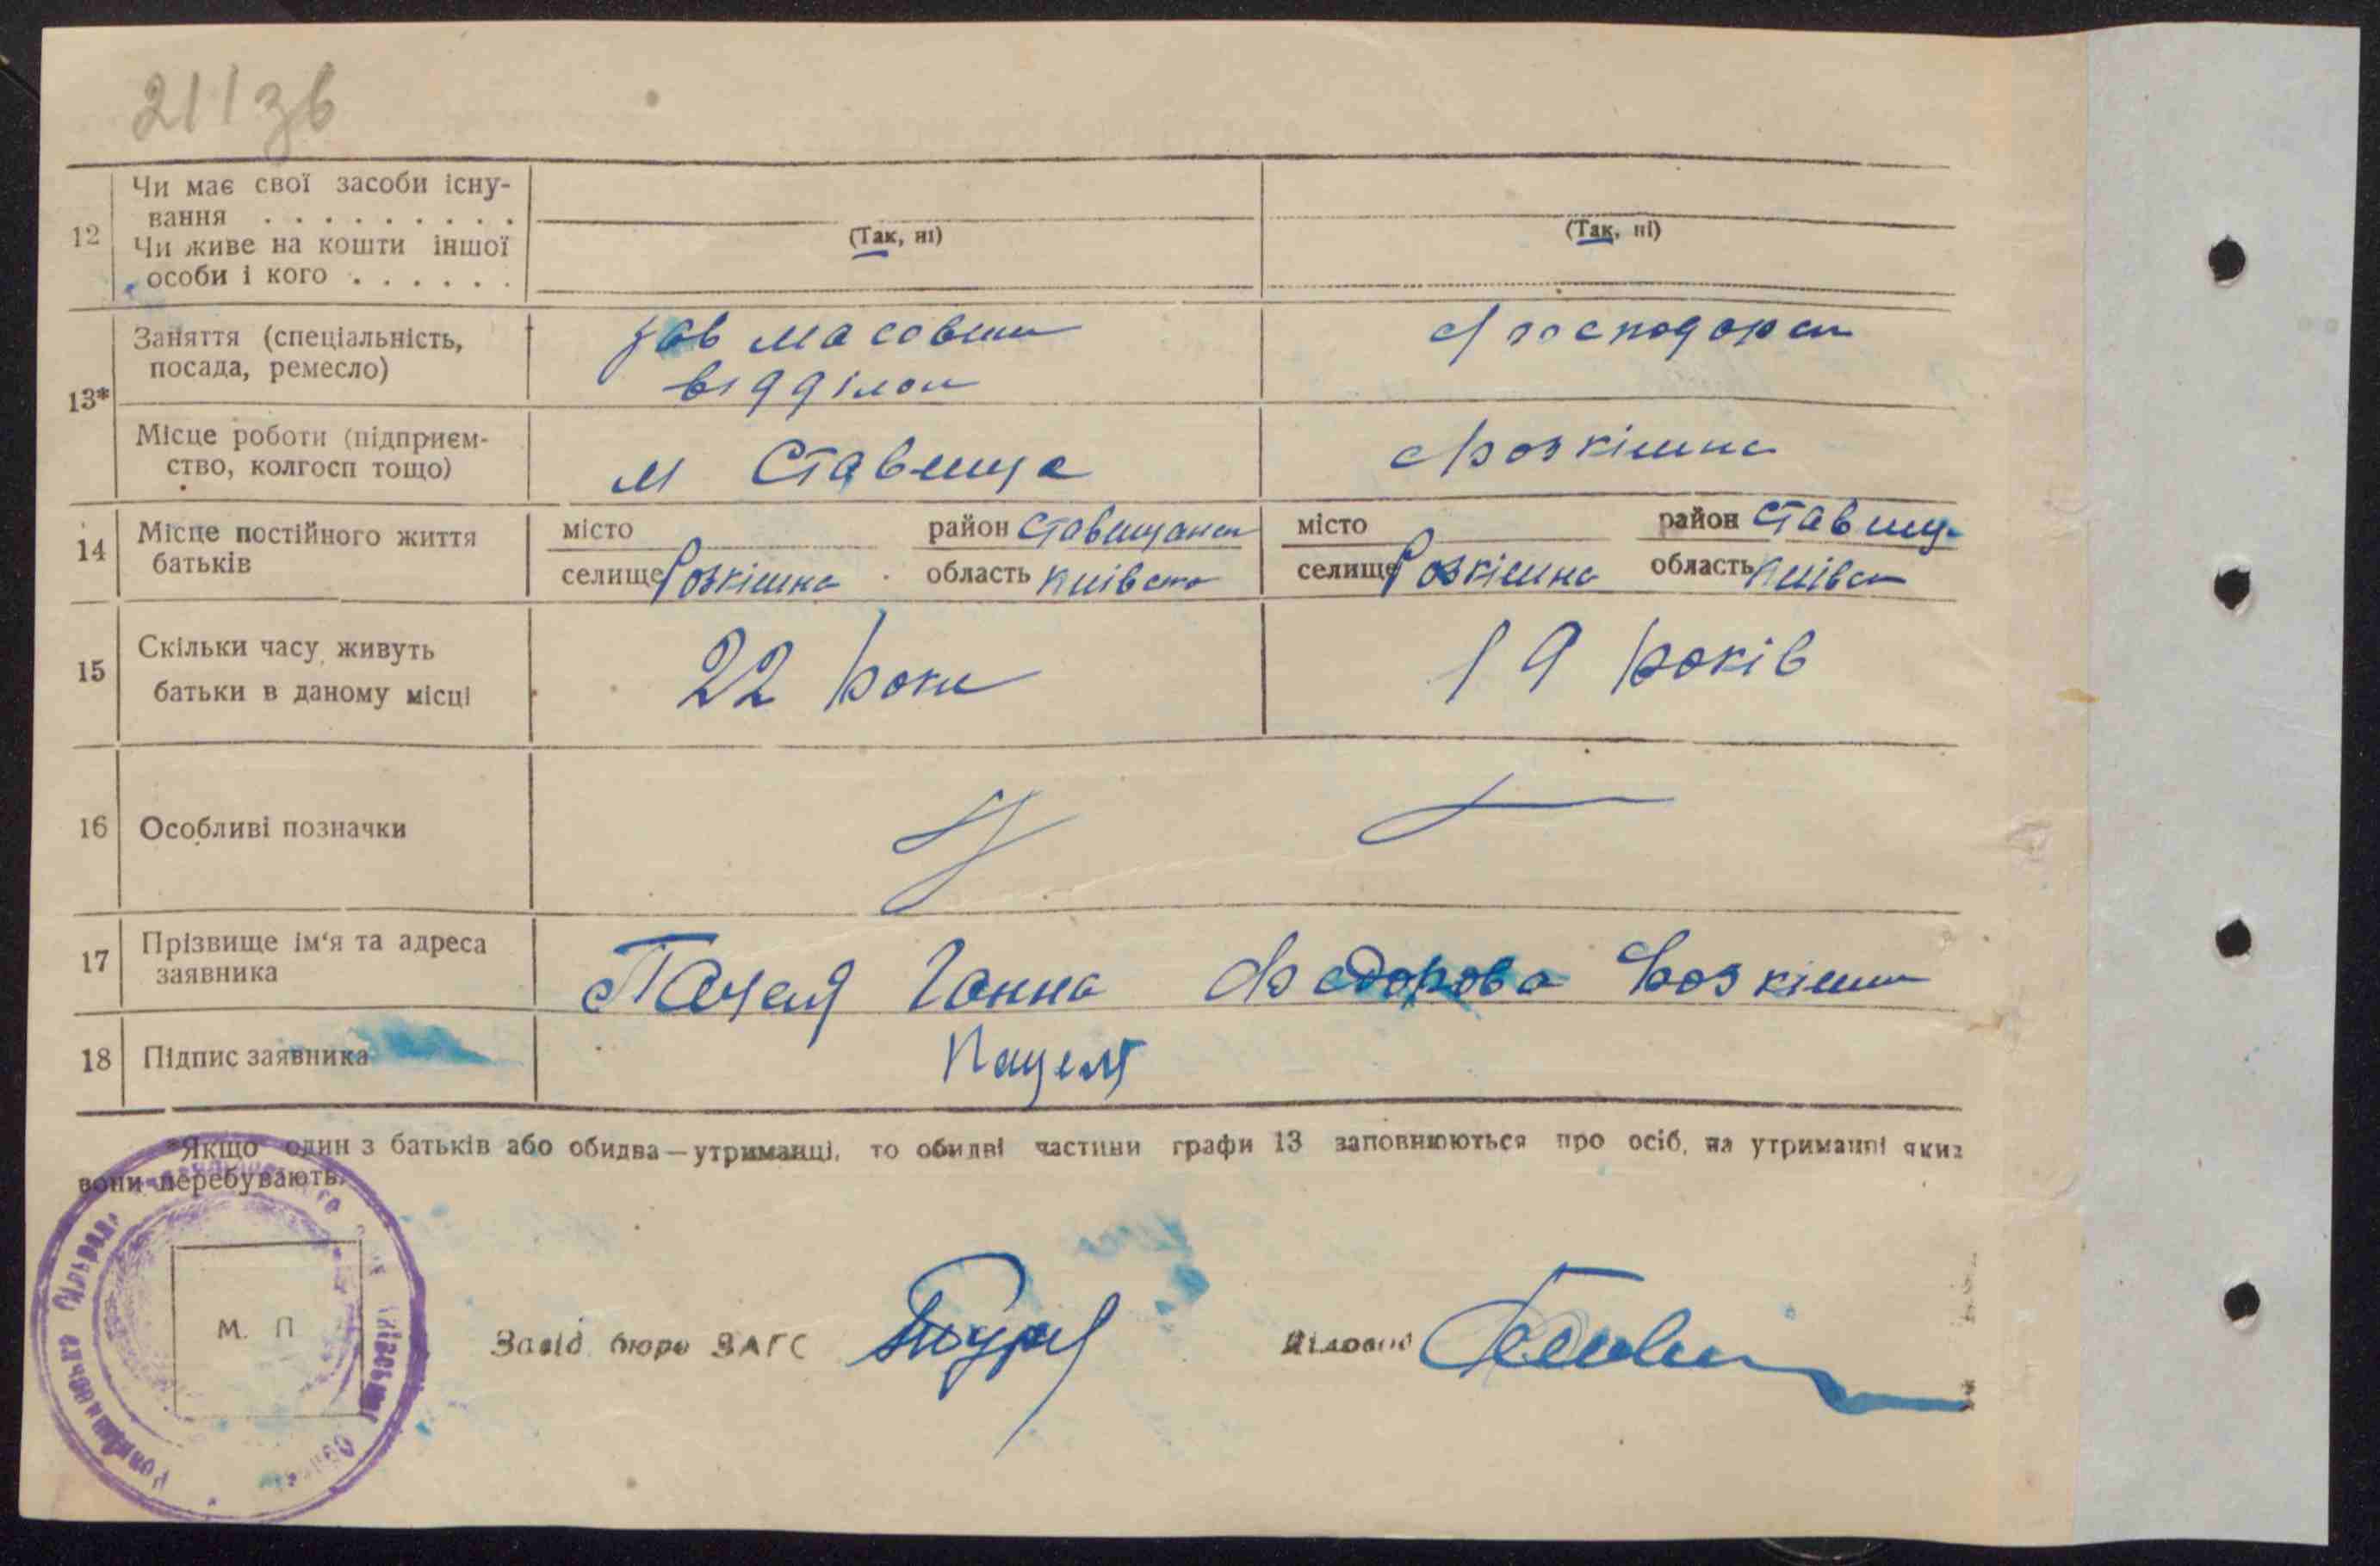 211 зв
12 Чи має свої засоби існу-
вання . . . . . . . . .
Чи живе на кошти іншої
особи і кого . . . . . .
(Так, ні) (Так, ні)
13* Заняття (спеціальність,
посада, ремесло)
зав масовим
відділом
господарка
Місце роботи (підприєм-
ство, колгосп тощо)
м Ставища Розкішна
14 Місце постійного життя
батьків
місто район Ставищанськ місто район Ставищ.
селище Розкішна область Київська селище Розкішна область Київськ
15 Скільки часу живуть
батьки в даному місці
22 роки 19 років
16 Особливі позначки
17 Прізвище ім'я та адреса
заявника
Ганна Федорова Розкішна
18 Підпис заявника
*Якщо один з батьків або обидва—утриманці, то обидві частини графи 13 заповнюються про осіб, на утриманні яких
вони перебувають.
М. П
Завід бюро ЗАГС Діловод